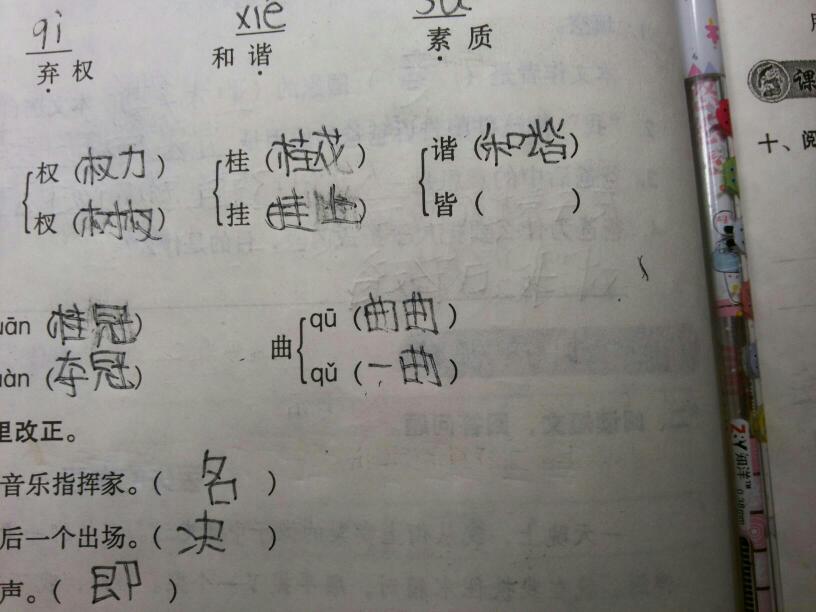 qì xié sù
弃权 和谐 素质
权（权力） 桂（桂花） 谐（和谐）
杈（树杈） 挂（挂上） 皆（ ）
uān（桂冠） 曲 qū（曲曲）
uàn（夺冠） qǔ（一曲）
里改正。
音乐指挥家。（ 名 ）
后一个出场。（ 决 ）
声。（ 即 ）
课
十、阅
知洋™ 0.38mm